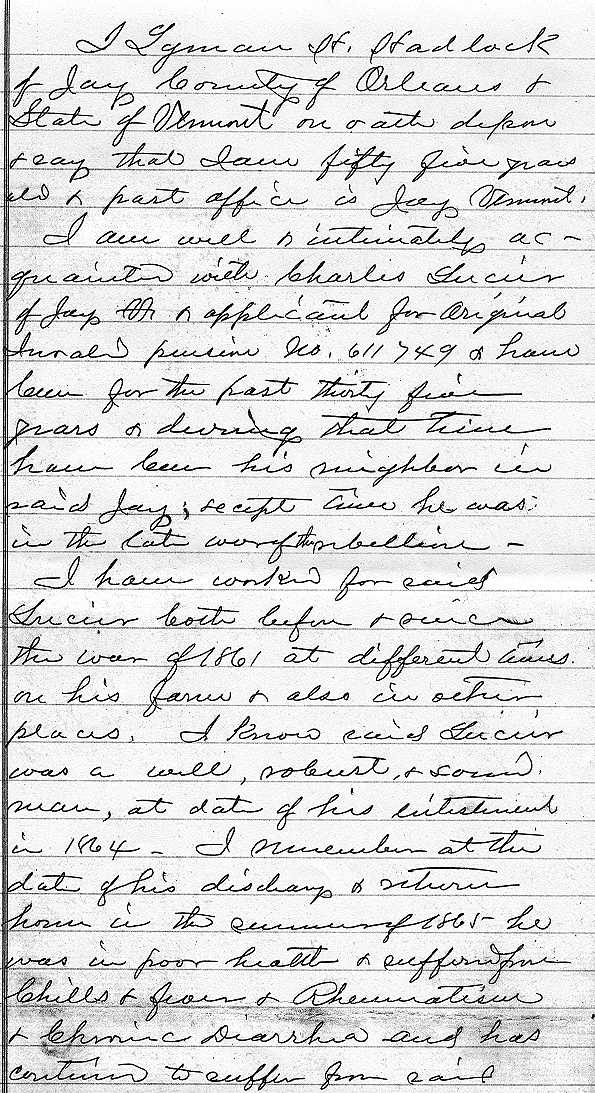 I Lyman H. Hadlock
of Jay County of Orleans &
State of Vermont on oath depose
& say that I am fifty five years
old & post office is Jay Vermont.
I am well & intimately ac-
quainted with Charles Lucier
of Jay Vt & applicant for Original
Invalid pension No. 611749 & have
been for the past thirty five
years & during that time
have been his neighbor in
said Jay; except time he was
in the late war of the rebellion -
I have worked for said
Lucier both before & since
the war of 1861 at different times
on his farm & also in other
places. I know said Lucier
was a well, robust, & sound
man, at date of his enlistment
in 1864 - I remember at the
date of his discharge & return
home in the summer of 1865 he
was in poor health & suffered from
Chills & fever & Rheumatism
& Chronic Diarrhea and has
continued to suffer from said